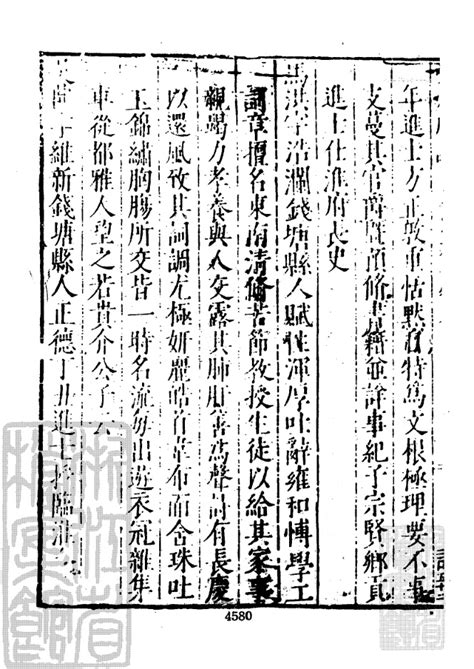 年進士方正敦重恬默自特為文根極理要不事
支蔓其官爵歷預脩書籍並詳事紀子宗賢鄉貢
進士仕淮府長史
馬洪字浩瀾錢塘縣人賦性渾厚吐辭雍和慱學工
詞章擅名東南清脩苦節教授生徒以給其家事
親竭力孝養與人交露其肺肝善為聲詩有長慶
以還風致其詞調尤極妍麗皓首韋布而含珠吐
玉錦繡胸腸所交皆一時名流每出遊衣冠雜集
車從都雅人望之若貴介公子云
字維新錢塘縣人正德丁丑進士授臨淮
4580